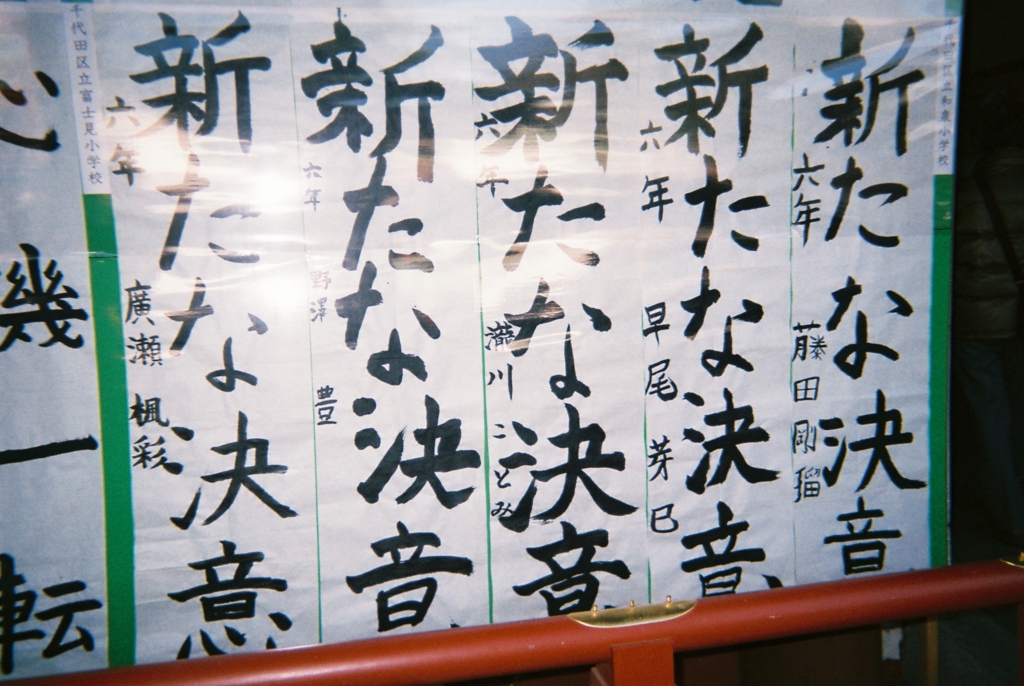 千代田区立和泉小学校
新たな決意
六年 藤田 剛瑠
新たな決意
六年 早尾 芽巳
新たな決意
六年 瀧川 ことみ
新たな決意
六年 野澤 豊
新たな決意
六年 廣瀬 楓彩
千代田区立富士見小学校
心機一転